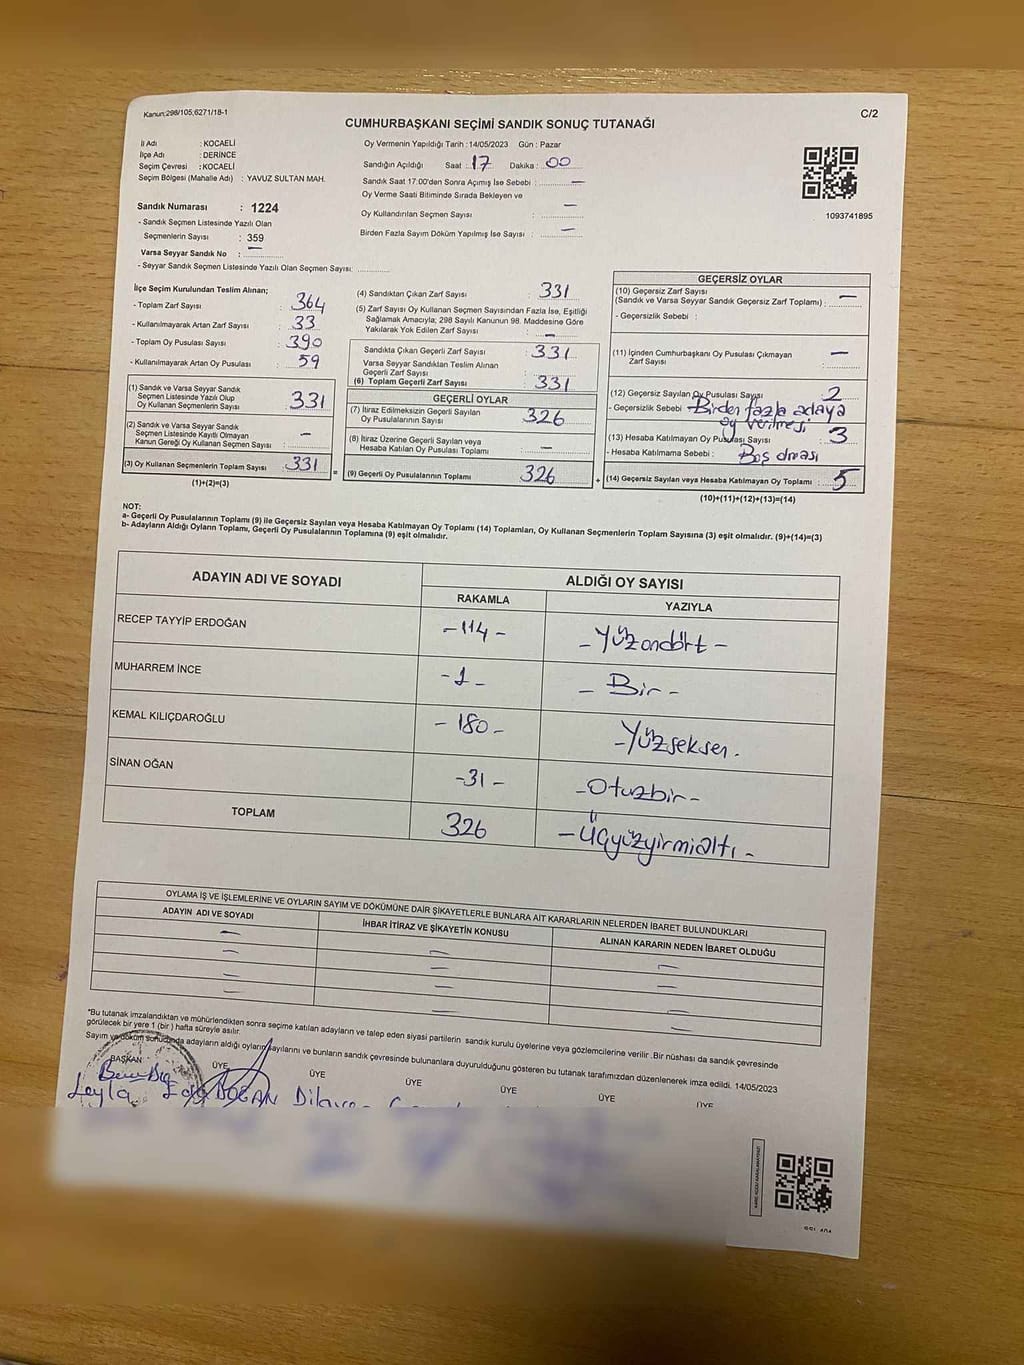 Kanun:298/105;6271/18-1
C/2
CUMHURBAŞKANI SEÇİMİ SANDIK SONUÇ TUTANAĞI
İl Adı : KOCAELİ
İlçe Adı : DERİNCE
Seçim Çevresi : KOCAELİ
Seçim Bölgesi (Mahalle Adı) : YAVUZ SULTAN MAH.
Sandık Numarası : 1224
- Sandık Seçmen Listesinde Yazılı Olan
Seçmenlerin Sayısı : 359
Varsa Seyyar Sandık No : —
- Seyyar Sandık Seçmen Listesinde Yazılı Olan Seçmen Sayısı:
Oy Vermenin Yapıldığı Tarih :14/05/2023 Gün : Pazar
Sandığın Açıldığı Saat : 17 Dakika : 00
Sandık Saat 17:00'den Sonra Açımış İse Sebebi : —
Oy Verme Saati Bitiminde Sırada Bekleyen ve
Oy Kullandırılan Seçmen Sayısı : —
Birden Fazla Sayım Döküm Yapılmış İse Sayısı : —
1093741895
İlçe Seçim Kurulundan Teslim Alınan;
- Toplam Zarf Sayısı : 364
- Kullanılmayarak Artan Zarf Sayısı : 33
- Toplam Oy Pusulası Sayısı : 390
- Kullanılmayarak Artan Oy Pusulası : 59
(1) Sandık ve Varsa Seyyar Sandık
Seçmen Listesinde Yazılı Olup
Oy Kullanan Seçmenlerin Sayısı : 331
(2) Sandık ve Varsa Seyyar Sandık
Seçmen Listesinde Kayıtlı Olmayan
Kanun Gereği Oy Kullanan Seçmen Sayısı : —
(3) Oy Kullanan Seçmenlerin Toplam Sayısı : 331
(1)+(2)=(3)
(4) Sandıktan Çıkan Zarf Sayısı : 331
(5) Zarf Sayısı Oy Kullanan Seçmen Sayısından Fazla İse, Eşitliği
Sağlamak Amacıyla; 298 Sayılı Kanunun 98. Maddesine Göre
Yakılarak Yok Edilen Zarf Sayısı : —
Sandıkta Çıkan Geçerli Zarf Sayısı : 331
Varsa Seyyar Sandıktan Teslim Alınan
Geçerli Zarf Sayısı :
(6) Toplam Geçerli Zarf Sayısı : 331
GEÇERLİ OYLAR
(7) İtiraz Edilmeksizin Geçerli Sayılan
Oy Pusulalarının Sayısı : 326
(8) İtiraz Üzerine Geçerli Sayılan veya
Hesaba Katılan Oy Pusulası Toplamı : —
= (9) Geçerli Oy Pusulalarının Toplamı : 326
GEÇERSİZ OYLAR
(10) Geçersiz Zarf Sayısı
(Sandık ve Varsa Seyyar Sandık Geçersiz Zarf Toplamı) : —
- Geçersizlik Sebebi :
(11) İçinden Cumhurbaşkanı Oy Pusulası Çıkmayan
Zarf Sayısı : —
(12) Geçersiz Sayılan Oy Pusulası Sayısı : 2
- Geçersizlik Sebebi : Birden fazla adaya
oy verilmesi
(13) Hesaba Katılmayan Oy Pusulası Sayısı : 3
- Hesaba Katılmama Sebebi : Boş olması
+ (14) Geçersiz Sayılan veya Hesaba Katılmayan Oy Toplamı : 5
(10)+(11)+(12)+(13)=(14)
NOT:
a- Geçerli Oy Pusulalarının Toplamı (9) ile Geçersiz Sayılan veya Hesaba Katılmayan Oy Toplamı (14) Toplamları, Oy Kullanan Seçmenlerin Toplam Sayısına (3) eşit olmalıdır. (9)+(14)=(3)
b- Adayların Aldığı Oyların Toplamı, Geçerli Oy Pusulalarının Toplamına (9) eşit olmalıdır.
ADAYIN ADI VE SOYADI ALDIĞI OY SAYISI
RAKAMLA YAZIYLA
RECEP TAYYİP ERDOĞAN -114- -Yüzondört-
MUHARREM İNCE -1- -Bir-
KEMAL KILIÇDAROĞLU -180- -Yüzseksen.
SİNAN OĞAN -31- -Otuzbir-
TOPLAM 326 -Üçyüzyirmialtı-
OYLAMA İŞ VE İŞLEMLERİNE VE OYLARIN SAYIM VE DÖKÜMÜNE DAİR ŞİKAYETLERLE BUNLARA AİT KARARLARIN NELERDEN İBARET BULUNDUKLARI
ADAYIN ADI VE SOYADI İHBAR İTİRAZ VE ŞİKAYETİN KONUSU ALINAN KARARIN NEDEN İBARET OLDUĞU
— — —
— — —
— — —
— — —
*Bu tutanak imzalandıktan ve mühürlendikten sonra seçime katılan adayların ve talep eden siyasi partilerin sandık kurulu üyelerine veya gözlemcilerine verilir .Bir nüshası da sandık çevresinde
görülecek bir yere 1 (bir ) hafta süreyle asılır.
Sayım ve döküm sonucunda adayların aldığı oyların sayılarını ve bunların sandık çevresinde bulunanlara duyurulduğunu gösteren bu tutanak tarafımızdan düzenlenerek imza edildi. 14/05/2023
BAŞKAN ÜYE ÜYE ÜYE ÜYE ÜYE ÜYE
Leyla DOĞAN